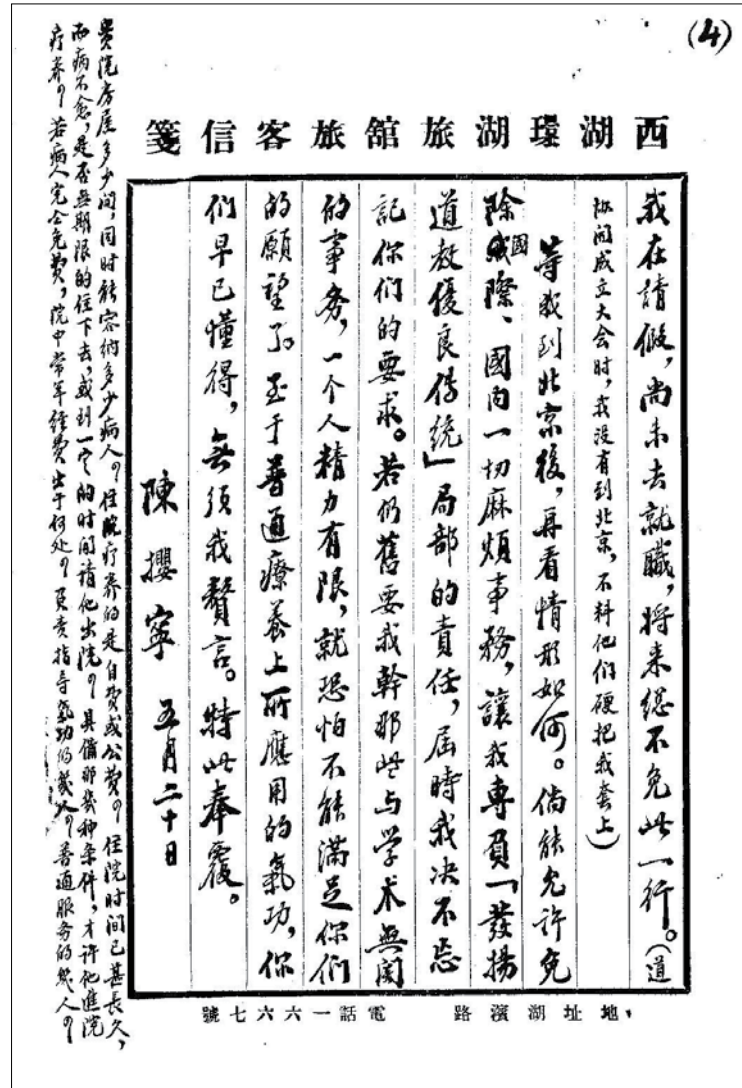 (4)
西湖環湖旅舘旅客信箋
我在請假，尚未去就職，将来總不免此一行。（道
協開成立大会時，我没有到北京，不料他们硬把我套上）
等我到北京後，再看情形如何。倘能允许免
除國際、國内一切麻煩事務，讓我專負「發揚
道教優良传统」局部的責任，届時我决不忘
記你们的要求。若仍舊要我幹那些与学术無関
的事务，一个人精力有限，就恐怕不能满足你们
的願望了。至于普通療養上所應用的氣功，你
们早已懂得，無須我贅言。特此奉覆。
陳攖寧 五月二十日
貴院房屋多少间，同时能容纳多少病人？住院疗养的是自费或公费？住院时间已甚長久，
而病不愈，是否無期限的住下去，或到一定的时间请他出院？具備那幾种条件，才许他進院
疗养？若病人完全免费，院中常年经费出于何处？負责指导氣功的幾人？普通服务的幾人？
地址湖濱路 電話一六六七號